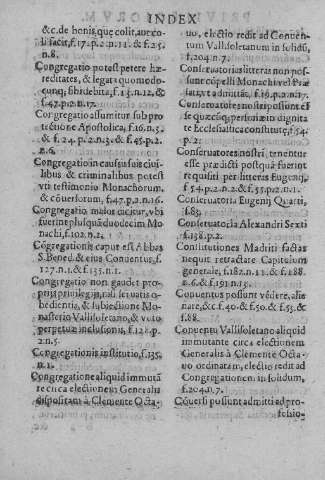 INDEX
& c. de bonis, quę colit, aut colifacit, f. 17. p. 2. n. 2. & f. 25.
n. 8.
Congregatio potest petere hæ-
reditates, & legata quomodo-
cunq; sibi debita, f. 13. n. 12. &
f. 47. p. 2. n. 17.
Cõgregatio assumitur sub pro
tectione Apostolica, f. 16. n. 5.
& f. 24. p. 2. n. 3. & f. 45. p. 2.
n. 6.
Congregatio in causis suis civi-
libus & criminalibus potest
vti testimonio Monachorum,
& cõuersorum, f. 47. p. 2. n. 16.
Congregatio maior dicitur, vbi
fuerine plusquā duodecim Mo
nachi, f. 102. n. 2.
Cõgregationis caput est Abbas
S. Bened. & eius Conuentus, f.
127. n. 1. & f. 135. n. 1.
Congregatio non gaudet pro-
prijs priuilegijs, nisi seruatis o-
bedientia, & subiectione Mo-
nasterio Vallisoletano, & voto
perpetuæ inclusionis, f. 128. p.
2. n. 5.
Congregationis institutio, f. 135.
n. 1.
Congregatione aliquid immutã
te circa electionem Generalis
dispositam à Clemente Octa-
uo, electio redit ad Conuen-
tum Vallisoletanum in solidũ,
f. 204. n. 7.
Conseruatorias litteras non pos-
sunt cõpelli Monachi vel Præ
latus, vt admittãt, f. 19. p. 2. n. 17.
Conseruatores nostri possunt es
se quæcũq; personæ in dignita
te Ecclesiastica constitutę, f. 54
p. 2.
Conseruatores nostri, tenentur
esse prædicti postquã fuerint
requisiti per litteras Eugenij,
f. 54. p. 2. n. 2. & f. 55. p. 2. n. 1.
Conseruatoria Eugenij Quarti,
f. 83.
Conseruatoria Alexandri Sexti
f. 138. p. 2.
Constitutiones Madriti factas
nequit retractare Capitulum
generale, f. 182. n. 12. & f. 188.
n. 6. & f. 191. n. 15.
Conuentus possunt védere, alie
nare, & c. f. 40. & f. 50. & f. 55.
& f. 88.
Conuentu Vallisoletano aliquid
immutante circa electionem
Generalis à Clemente Octa-
uo ordinatam, electio redit ad
Congregationem in solidum,
f. 204. n. 7.
Cõuersi possunt admitti ad pro-
fessio-